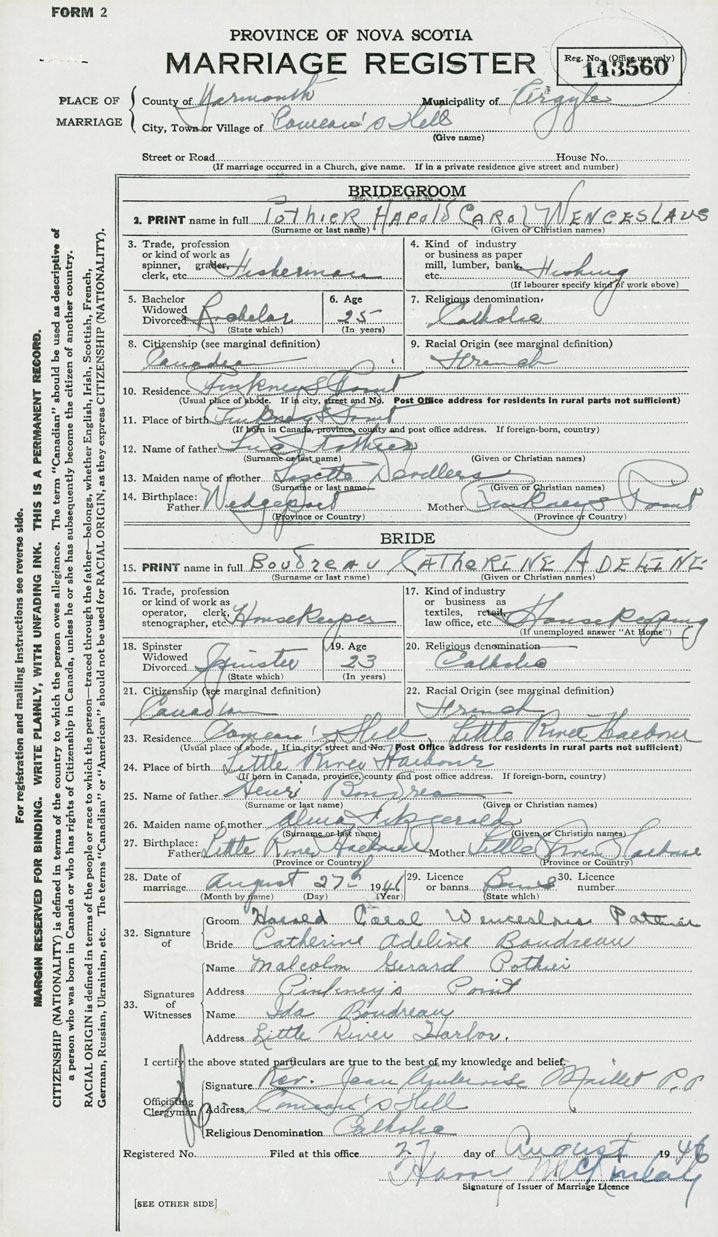 FORM 2
PROVINCE OF NOVA SCOTIA
MARRIAGE REGISTER
Reg. No. (Office use only)
143560
PLACE OF MARRIAGE
County of Yarmouth Municipality of Argyle
City, Town or Village of Comeau's Hill
(Give name)
Street or Road House No.
(If marriage occurred in a Church, give name. If in a private residence give street and number)
BRIDEGROOM
2. PRINT name in full POTHIER HAROLD CAROL WENCESLAUS
(Surname or last name) (Given or Christian names)
3. Trade, profession or kind of work as spinner, grader, clerk, etc. Fisherman
4. Kind of industry or business as paper mill, lumber, bank, etc. Fishing
(If labourer specify kind of work above)
5. Bachelor Widowed Divorced Bachelor
(State which)
6. Age 25
(In years)
7. Religious denomination Catholic
8. Citizenship (see marginal definition) Canadian
9. Racial Origin (see marginal definition) French
10. Residence Pinkney's Point
(Usual place of abode. If in city, street and No. Post Office address for residents in rural parts not sufficient)
11. Place of birth Pinkney's Point
(If born in Canada, province, county and post office address. If foreign-born, country)
12. Name of father Pothier
(Surname or last name) (Given or Christian names)
13. Maiden name of mother Devillers
(Surname or last name) (Given or Christian names)
14. Birthplace: Father Wedgeport Mother Pinkney's Point
(Province or Country) (Province or Country)
BRIDE
15. PRINT name in full BOUDREAU CATHERINE ADELINE
(Surname or last name) (Given or Christian names)
16. Trade, profession or kind of work as operator, clerk, stenographer, etc. Housekeeper
17. Kind of industry or business as textiles, retail, law office, etc. Housekeeping
(If unemployed answer "At Home")
18. Spinster Widowed Divorced Spinster
(State which)
19. Age 23
(In years)
20. Religious denomination Catholic
21. Citizenship (see marginal definition) Canadian
22. Racial Origin (see marginal definition) French
23. Residence Comeau's Hill Little River Harbour
(Usual place of abode. If in city, street and No. Post Office address for residents in rural parts not sufficient)
24. Place of birth Little River Harbour
(If born in Canada, province, county and post office address. If foreign-born, country)
25. Name of father Henri Boudreau
(Surname or last name) (Given or Christian names)
26. Maiden name of mother Alma Fitzgerald
(Surname or last name) (Given or Christian names)
27. Birthplace: Father Little River Harbour Mother Little River Harbour
(Province or Country) (Province or Country)
28. Date of marriage August 27th 1946
(Month by name) (Day) (Year)
29. Licence or banns Banns
(State which)
30. Licence number
32. Signature of
Groom Harold Carol Wenceslaus Pothier
Bride Catherine Adeline Boudreau
33. Signatures of Witnesses
Name Malcolm Gerard Pothier
Address Pinkney's Point
Name Ida Boudreau
Address Little River Harbor.
I certify the above stated particulars are true to the best of my knowledge and belief.
Officiating Clergyman
Signature Rev. Jean Ambroise Maillet P.P.
Address Comeau's Hill
Religious Denomination Catholic
Registered No. Filed at this office 27 day of August 1946
Harry McKinlay
Signature of Issuer of Marriage Licence
[SEE OTHER SIDE]
For registration and mailing instructions see reverse side.
MARGIN RESERVED FOR BINDING. WRITE PLAINLY, WITH UNFADING INK. THIS IS A PERMANENT RECORD.
CITIZENSHIP (NATIONALITY) is defined in terms of the country to which the person owes allegiance. The term "Canadian" should be used as descriptive of
a person who was born in Canada or who has rights of Citizenship in Canada, unless he or she has subsequently become the citizen of another country.
RACIAL ORIGIN is defined in terms of the people or race to which the person—traced through the father—belongs, whether English, Irish, Scottish, French,
German, Russian, Ukrainian, etc. The terms "Canadian" or "American" should not be used for RACIAL ORIGIN, as they express CITIZENSHIP (NATIONALITY).